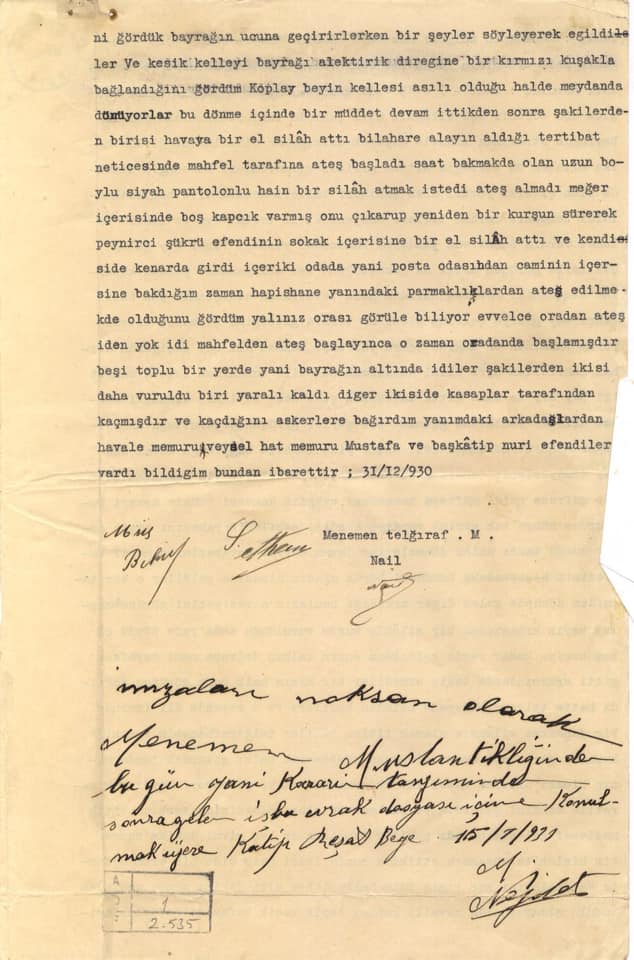 ni gördük bayrağın ucuna geçirirlerken bir şeyler söyleyerek egildile
ler Ve kesik kelleyi bayrağı alektirik diregine bir kırmızı kuşakla
bağlandığını gördüm Koplay beyin kellesi asılı olduğu halde meydanda
dönüyorlar bu dönme içinde bir müddet devam ittikden sonra şakilerde-
n birisi havaya bir el silâh attı bilahare alayın aldığı tertibat
neticesinde mahfel tarafına ateş başladı saat bakmakda olan uzun bo-
ylu siyah pantolonlu hain bir silâh atmak istedi ateş almadı meğer
içerisinde boş kapcık varmış onu çıkarup yeniden bir kurşun sürerek
peynirci şükrü efendinin sokak içerisine bir el silâh attı ve kendi
side kenarda girdi içeriki odada yani posta odasından caminin içer-
sine bakdığım zaman hapishane yanındaki parmaklıklardan ateş edilme-
kde olduğunu gördüm yalınız orası görüle biliyor evvelce oradan ateş
iden yok idi mahfelden ateş başlayınca o zaman oradanda başlamışdır
beşi toplu bir yerde yani bayrağın altında idiler şakilerden ikisi
daha vuruldu biri yaralı kaldı diger ikiside kasaplar tarafından
kaçmışdır ve kaçdığını askerlere bağırdım yanımdaki arkadaşlardan
havale memuru veysel hat memuru Mustafa ve başkâtip nuri efendiler
vardı bildigim bundan ibarettir ; 31/12/930
Menemen telğıraf . M .
Nail
imzaları noksan olarak
Menemen Müstantikliğinden
bu gün yani Kararın tanziminden
sonra gelen işbu evrak dosyası içine Konul-
mak üzere Kâtip Reşat Beye 15/1/931
M.
1
2.535